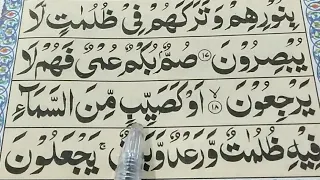 بِنُورِهِمْ وَتَرَكَهُمْ فِيْ ظُلُمٰتٍ لَّا
يُبْصِرُوْنَ ﴿۱۷﴾ صُمٌّۢ بُكْمٌ عُمْيٌ فَهُمْ لَا
يَرْجِعُوْنَ ﴿۱۸﴾ۙ اَوْ كَصَيِّبٍ مِّنَ السَّمَآءِ
فِيْهِ ظُلُمٰتٌ وَّرَعْدٌ وَّبَرْقٌ ۚ يَجْعَلُوْنَ